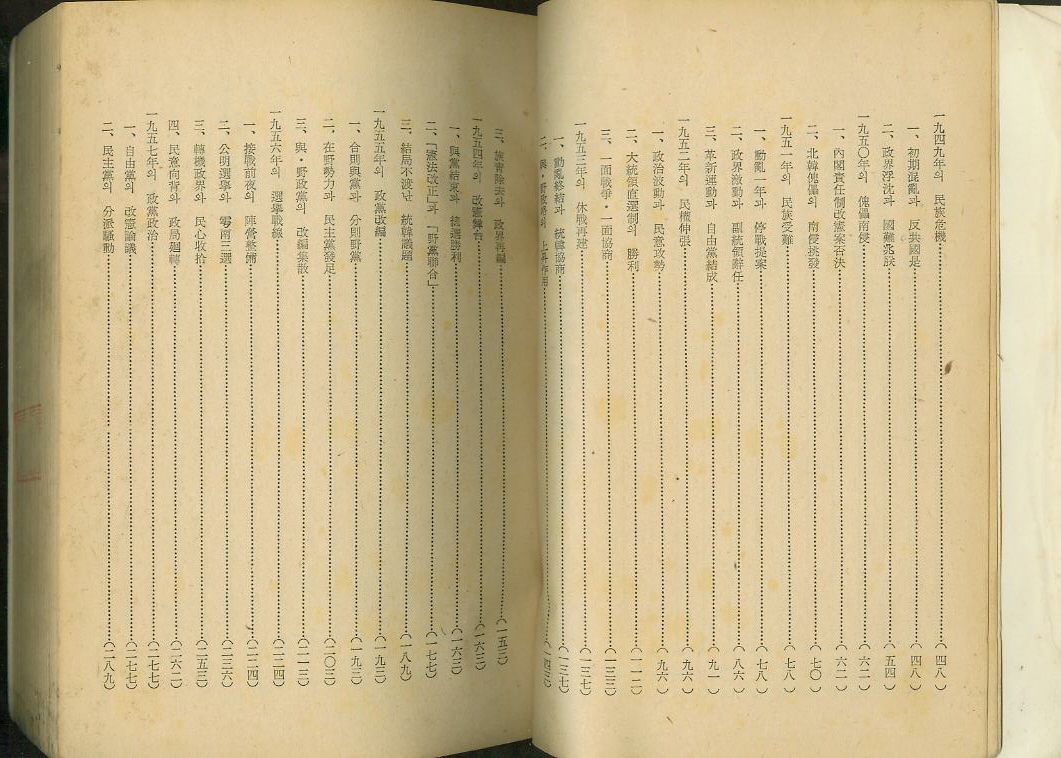 一九四九年의 民族危機………(四八)
一、初期混亂과 反共國是………(四八)
二、政界浮沈과 國難兆朕………(五四)
一九五〇年의 傀儡南侵………(六二)
一、內閣責任制改憲案否決………(六二)
二、北韓傀儡의 南侵挑發………(七〇)
一九五一年의 民族受難………(七八)
一、動亂一年과 停戰提案………(七八)
二、政界激動과 副統領辭任………(八六)
三、革新運動과 自由黨結成………(九一)
一九五二年의 民權伸張………(九六)
一、政治波動과 民意攻勢………(九六)
二、大統領直選制의 勝利………(一一二)
三、一面戰爭・一面協商………(一三三)
一九五三年의 休戰再建………(一三七)
一、動亂終結과 統韓協商………(一三七)
二、與・野政界의 上昇作用………(一四三)
三、族靑除去와 政界再編………(一五三)
一九五四年의 改憲舞台………(一六三)
一、與黨結束과 總選勝利………(一六三)
二、「憲法改正」과 「野黨聯合」………(一七七)
三、結局不渡난 統韓議題………(一八九)
一九五五年의 政黨改編………(一九三)
一、合則與黨과 分則野黨………(一九三)
二、在野勢力과 民主黨發足………(二〇三)
三、與・野政黨의 改編集散………(二一三)
一九五六年의 選擧戰線………(二二四)
一、接戰前夜의 陣營整備………(二二四)
二、公明選擧와 零南三選………(二三六)
三、轉機政界와 民心收拾………(二五三)
四、民意向背와 政局廻轉………(二六二)
一九五七年의 政黨政治………(二七七)
一、自由黨의 改憲論議………(二七七)
二、民主黨의 分派騷動………(二八九)